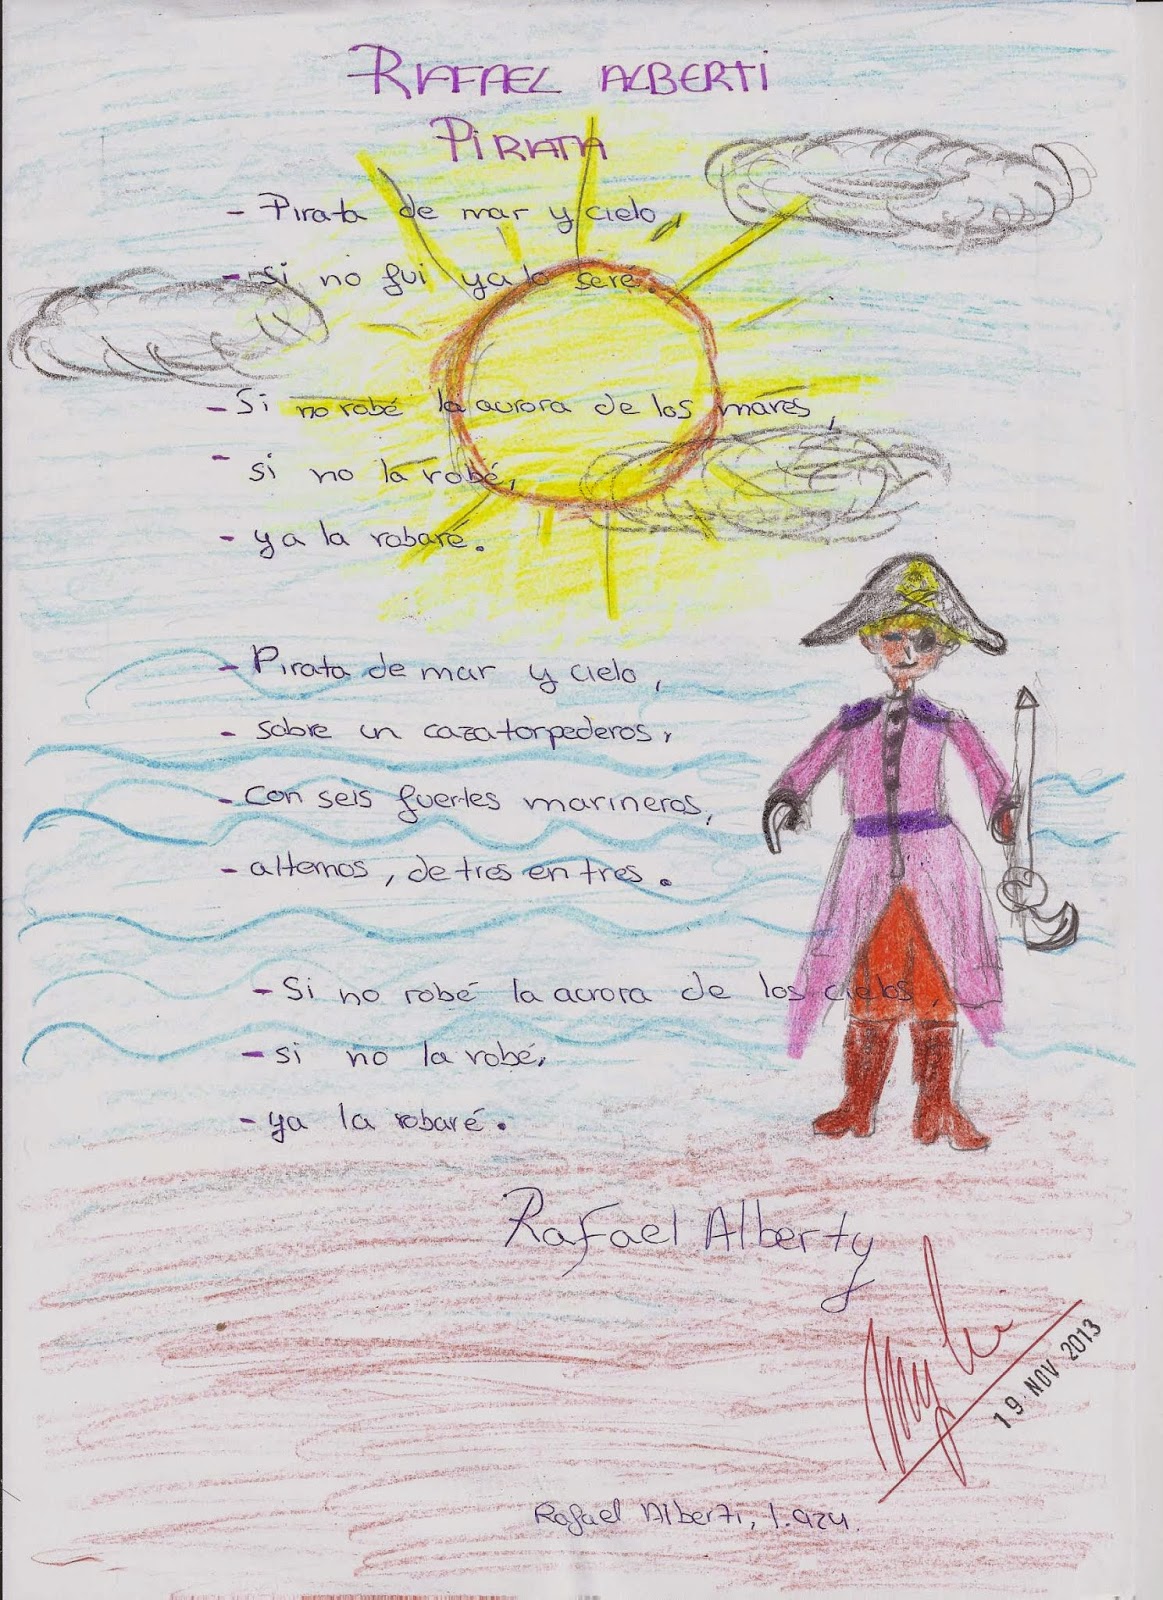 RAFAEL ALBERTI
PIRATA
- Pirata de mar y cielo,
- si no fui ya lo seré.
- Si no robé la aurora de los mares,
- si no la robé,
- ya la robaré.
- Pirata de mar y cielo,
- sobre un cazatorpederos,
- con seis fuertes marineros,
- alternos, de tres en tres.
- Si no robé la aurora de los cielos,
- si no la robé,
- ya la robaré.
Rafael Alberty
19 NOV 2013
Rafael Alberti, 1.924.